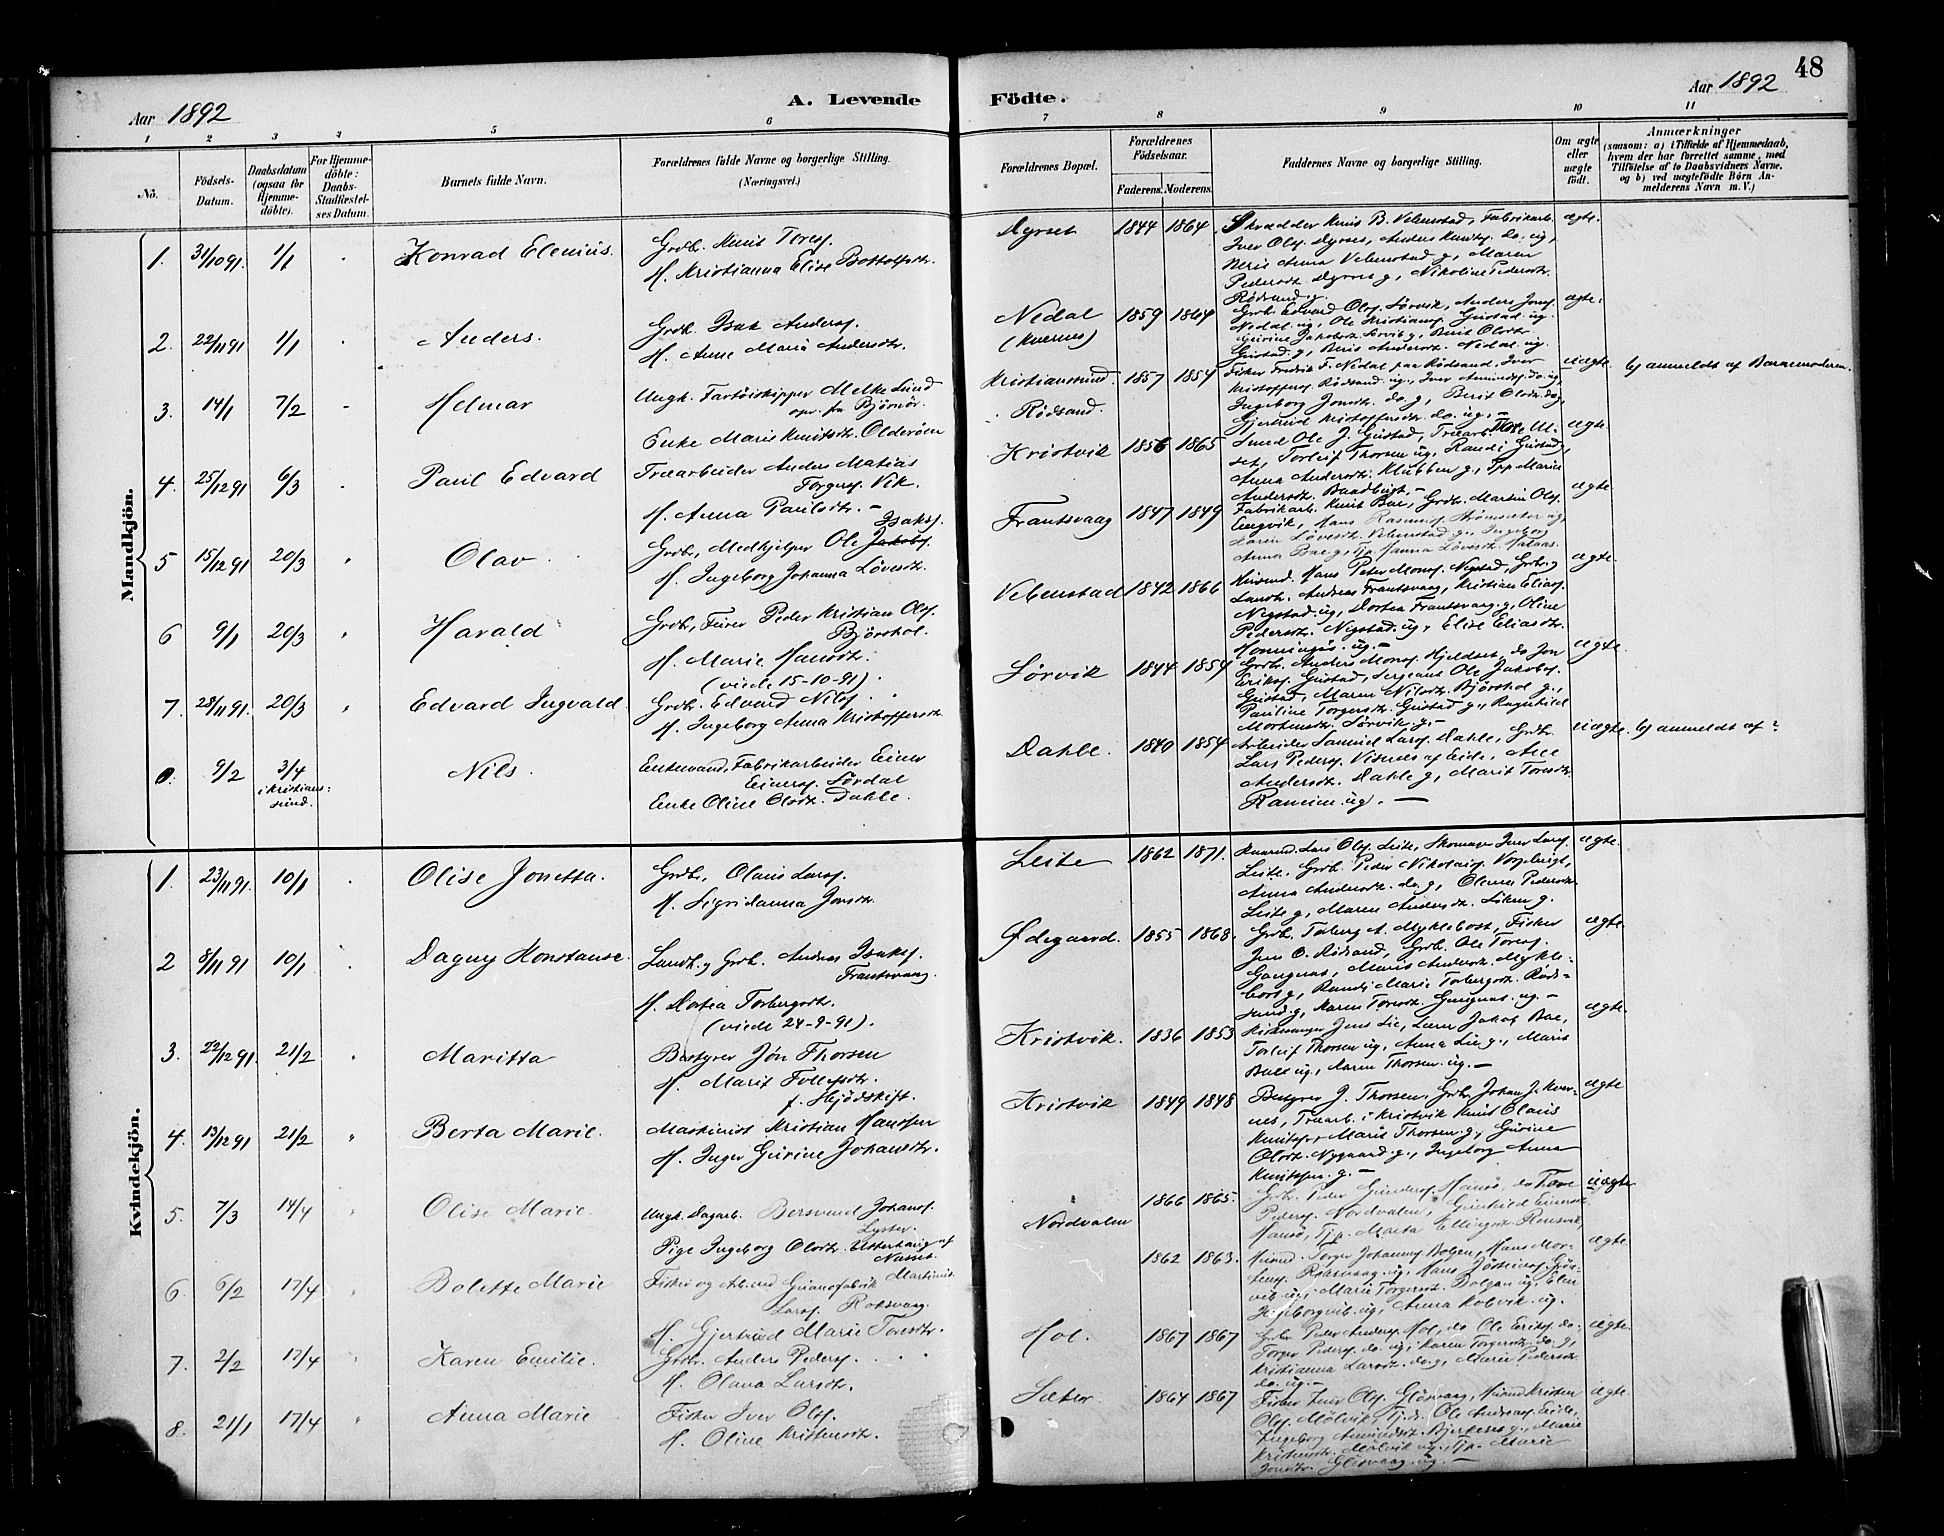 48
Aar 1892
A. Levende
Födte.
Aar 1892
1
2
3
4
5
6
7
8
9
10
11
Nō.
Födsels-
Datum.
Daabsdatum
(ogsaa for
Hjemme-
döbte).
For Hjemme-
döbte:
Daabs-
Stadfæstel-
ses Datum.
Barnets fulde Navn.
Forældrenes fulde Navne og borgerlige Stilling.
(Næringsvei.)
Forældrenes Bopæl.
Forældrenes
Födselsaar.
Faderens.
Moderens.
Faddernes Navne og borgerlige Stilling.
Om ægte
eller
uægte
födt.
Anmærkninger
(saasom: a) i Tilfælde af Hjemmedaab,
hvem der har forrettet samme, med
Tilföielse af to Daabsvidners Navne,
og b) ved uægtefödte Börn An-
melderens Navn m. V.)
Mandkjön.
1. 31/10 91. 1/1 Konrad Elenius.
Grdb. Knut Toress.
H. Kristianna Elise Bottolfsdtr.
Dyrset 1844 1864
Skrædder Knut B. Vebenstad, Fabrikarb.
Iver Ols. Dyrset, Anders Knuts. do. ug,
Berit Anna Vebenstad g, Maren
Pedersdt. Dyrset g, Nikoline Pedersdt.
Rödsand g.
ægte.
2. 22/11 91 1/1 Anders.
Grdb. Isak Anders.
H. Anne Maria Andersdtr.
Nedal
(Kvernes)
1859 1864
Grdb. Edvard Ols. Sörvik, Anders Jons.
Nedal ug, Ole Kristians. Gustad ug.
Gurine Jakobsdt. Sörvik g, Berit Olsdt.
Gustad g, Beris Andersdt. Nedal ug.
ægte.
3. 14/1 7/2 Helmar
Ungk. Fartöiskipper Melke Lund
opr. fra Björnör.
Enke Marie Knutsdtr. Olderöen
Kristianssund.
Rödsand.
1857 1854
Fisker Fredrik J. Nedal paa Rödsand, Iver
Kristoffers. Rödsand ug., Iver Amunds. do. ug,
Ingeborg Jonsdt. do. g, Berit Olsdt. do g,
Gjertrud Kristoffersdt. do. ug.
uægte. b) anmeldt af Barnemoderen.
4. 25/12 91 6/3 Paul Edvard
Træarbeider Anders Matias
Torgers. Vik.
H. Anna Paulsdt.
Kristvik 1856 1865
Smed Ole J. Gustad, Træarb. Tore
set, Torleif Thorsen ug, Randi Gustad g,
Anna Andersdt. Klubben g, Tpp Marie
Andersdt.
ægte
5 15/12 91 20/3 Olav
Isaks.
Grdb, Medhjelper Ole Jakobs.
H. Ingeborg Johanna Lövesdt.
Frantsvaag 1847 1849
Fabrikarb. Knut Bae, Grdb. Martin Ols.
Engvik, Hans Rasmus. Strömsæter ug,
Karen Lövesdt. Vebenstad g, Ingeborg
Anna Bae g, Tp. Hanna Lövesdt.
ægte
6 9/1 20/3 Harald
Grdb, Fuirer Peder Kristian Ols.
Björshol.
H. Marie Hansdt.
(viede 15-10-91).
Vebenstad 1842 1866
Husmd. Hans Peter Mons. Nystad, Grdb. g
Landh. Andreas Frantsvaag, Kristian Elias.
Nigstad ug, Dortea Frantsvaag g, Oline
Pedersdt. Nigstad ug, Elise Eliasdt.
ug.
ægte
7. 28/11 91. 20/3 Edvard Ingvald
Grdb. Edvard Nils.
H. Ingeborg Anna Kristoffersdt.
Sörvik 1844 1854
Grdb. Anders Mons. Hjeldset, do Jon
Eriks. Gustad, Sergeant Ole Jakobs.
Gustad, Maren Nilsdt. Björshol g.,
Pauline Torgersdt. Gustad g., Ragnhild
Mortensdt. Sörvik g.
ægte.
0. 9/2 3/4
i Kristians:
sund.
Nils
Enkemand, Fabrikarbeider Einer
Einers. Sördal
Enke Oline Olsdt. Dahle.
Dahle. 1840 1854
Arbeider Samuel Lars. Dahle, Grdb.
Lars Peders. Visnes af Eide, Ane
Andersdt. Dahle g, Marit Toresdt.
Raneim. ug.
uægte. b) anmeldt af?
Kvindekjön.
1. 23/11 91. 10/1 Olise Jonetta.
Grdb, Olaus Lars.
H. Sigridanna Jonsdt.
Leite 1862 1871.
Lars Ols. Leite, Skomager Iver Lars.
Leite. Grdb. Peder Nikolais.
Anna Andersdt. do. g, Oline Pedersdt.
Leite g, Maren Andersdt. g.
ægte.
2 8/11 91 10/1 Dagny Konstanse.
Landh. g Grdb. Andreas Isaks.
Frantsvaag.
H. Dortea Torbergsdt.
(viede 24-9-91).
Ødegaard. 1855 1868.
Grdb. Torberg A. Myklebost, Fisker
Jens O. Rödsand, Grdb. Ole Tores.
Gangnæs, Marie Andersdt. Mykle-
bost g, Randi Marie Torbergsdt. Röd-
sand g, Karen Toresdt. Gangnæs. ug.
ægte.
3. 22/12 91. 21/2 Maritta
Bestyrer Jön Thorsen
H. Marit Follessdtr.
f. Hjödskift.
Kristvik. 1836 1853
Kirkesanger Jens Lie, Lærer Jakob Bae,
Torleif Thorsen ug, Anna Lie g., Marit
Bae ug., Karen Thorsen ug.
ægte.
4. 13/12 91 21/2 Berta Marie.
Maskinist Kristian Hanssen
H. Inger Gurine Johansdtr.
Kristvik 1849 1848
Bestyrer J. Thorsen, Grdb. Johan J. Kver-
nes, Træarb. i Kristvik Knut Olaus
Knutssen, Marit Thorsen g., Gurine
Olsdt. Nygaard g., Ingeborg Anna
Knutssen g.
ægte
5. 7/3 14/4 Olise Marie.
Ungk. Dagarb. Bersvend Johans.
Lyster.
Pige Ingeborg Olsdtr. Utterhaug af
Nesset.
Nordvalen 1866 1865.
Grdb. Peder Gunders. Hansö, do Tore
Peders. Nordvalen, Gunhild Einersdt.
Hansö, Tjp. Marta Ellingsdt. Rensvik.
uægte.
6. 6/2 17/4 Bolette Marie
Fisker og Guanofabrik Martinus
Lars. Roksvaag.
H. Gjertrud Marie Toresdtr.
1862 1863.
Husmd. Torger Johannes. Bolgen, Hans Mor-
tens. Roksvaag ug, Hans Jöstens.
vik ug, Marie Torgersdt. Bolgen ug, Elen
ug, Anna Kolvik. ug.
ægte.
7. 2/2 17/4 Karen Emilie.
Grdb. Anders Peders.
H. Olava Larsdtr.
Hol. 1867 1867
Grdb. Peder Anders. Hol, do Ole Eriks. do.
Torger Peders. do. ug, Karen Torgersdt. do. g,
Kristianna Larsdt. do. g, Marie Pedersdt.
do. ug.
ægte.
8. 21/1 17/4 Anna Marie
Fisker Iver Ols.
H. Oline Kristensdt.
Sæter 1864 1867
Fisker Iver Ols. Glösvaag, Husmd Kristen
Ols. Mölvik, Tjdr. Ole Andreas. Eide,
Ingeborg Amundsdt. Bjerkenes g., Marie
Kristensdt. Mölvik ug, Tp. Marie
Jonsdt. Glösvaag. ug.
ægte.